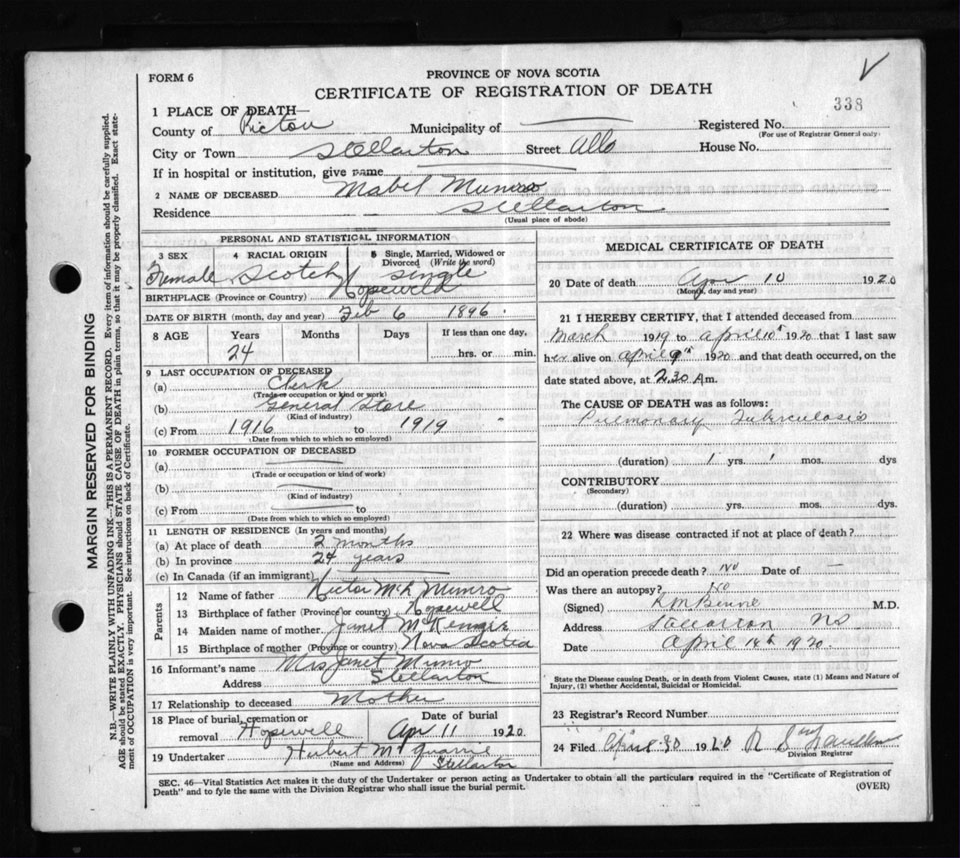 FORM 6
PROVINCE OF NOVA SCOTIA
CERTIFICATE OF REGISTRATION OF DEATH
338
1 PLACE OF DEATH—
County of Pictou Municipality of Registered No.
(For use of Registrar General only)
City or Town Stellarton Street House No.
If in hospital or institution, give name
2 NAME OF DECEASED Mabel Munro
Residence Stellarton
(Usual place of abode)
PERSONAL AND STATISTICAL INFORMATION
3 SEX 4 RACIAL ORIGIN 5 Single, Married, Widowed or Divorced (Write the word)
Female Scotch Single
BIRTHPLACE (Province or Country) Hopewell
DATE OF BIRTH (month, day and year) Feb 6 1896
8 AGE Years Months Days If less than one day,
24 hrs. or min.
9 LAST OCCUPATION OF DECEASED
(a) Clerk
(Trade or occupation or kind or work)
(b) General Store
(Kind of industry)
(c) From 1916 to 1919
(Date from which to which so employed)
10 FORMER OCCUPATION OF DECEASED
(a)
(Trade or occupation or kind of work)
(b)
(Kind of industry)
(c) From to
(Date from which to which so employed)
11 LENGTH OF RESIDENCE (In years and months)
(a) At place of death 2 months
(b) In province 24 years
(c) In Canada (if an immigrant)
Parents
12 Name of father Munro
13 Birthplace of father (Province or country) Hopewell
14 Maiden name of mother Janet McKenzie
15 Birthplace of mother (Province or country) Nova Scotia
16 Informant's name Mrs Janet Munro
Address Stellarton
17 Relationship to deceased Mother
18 Place of burial, cremation or removal Hopewell Date of burial Apr 11 1920.
19 Undertaker Hubert McQuarrie
(Name and Address) Stellarton
MEDICAL CERTIFICATE OF DEATH
20 Date of death Apr 10 1920
(Month, day and year)
21 I HEREBY CERTIFY, that I attended deceased from
March 1919 to April 10th 1920 that I last saw
her alive on April 9th 1920 and that death occurred, on the
date stated above, at 2.30 A m.
The CAUSE OF DEATH was as follows:
Pulmonary Tuberculosis
(duration) 1 yrs. 1 mos. dys
CONTRIBUTORY
(Secondary)
(duration) yrs. mos. dys.
22 Where was disease contracted if not at place of death?
Did an operation precede death? no Date of —
Was there an autopsy? no
(Signed) M.D.
Address Stellarton NS
Date April 14th 1920.
State the Disease causing Death, or in death from Violent Causes, state (1) Means and Nature of
Injury, (2) whether Accidental, Suicidal or Homicidal.
23 Registrar's Record Number
24 Filed April 30 1920
Division Registrar
SEC. 46—Vital Statistics Act makes it the duty of the Undertaker or person acting as Undertaker to obtain all the particulars required in the "Certificate of Registration of
Death" and to fyle the same with the Division Registrar who shall issue the burial permit.
(OVER)
MARGIN RESERVED FOR BINDING
N.B.—WRITE PLAINLY WITH UNFADING INK—THIS IS A PERMANENT RECORD. Every item of information should be carefully supplied.
AGE should be stated EXACTLY. PHYSICIANS should STATE CAUSE OF DEATH in plain terms, so that it may be properly classified. Exact state-
ment of OCCUPATION is very important. See instructions on back of Certificate.